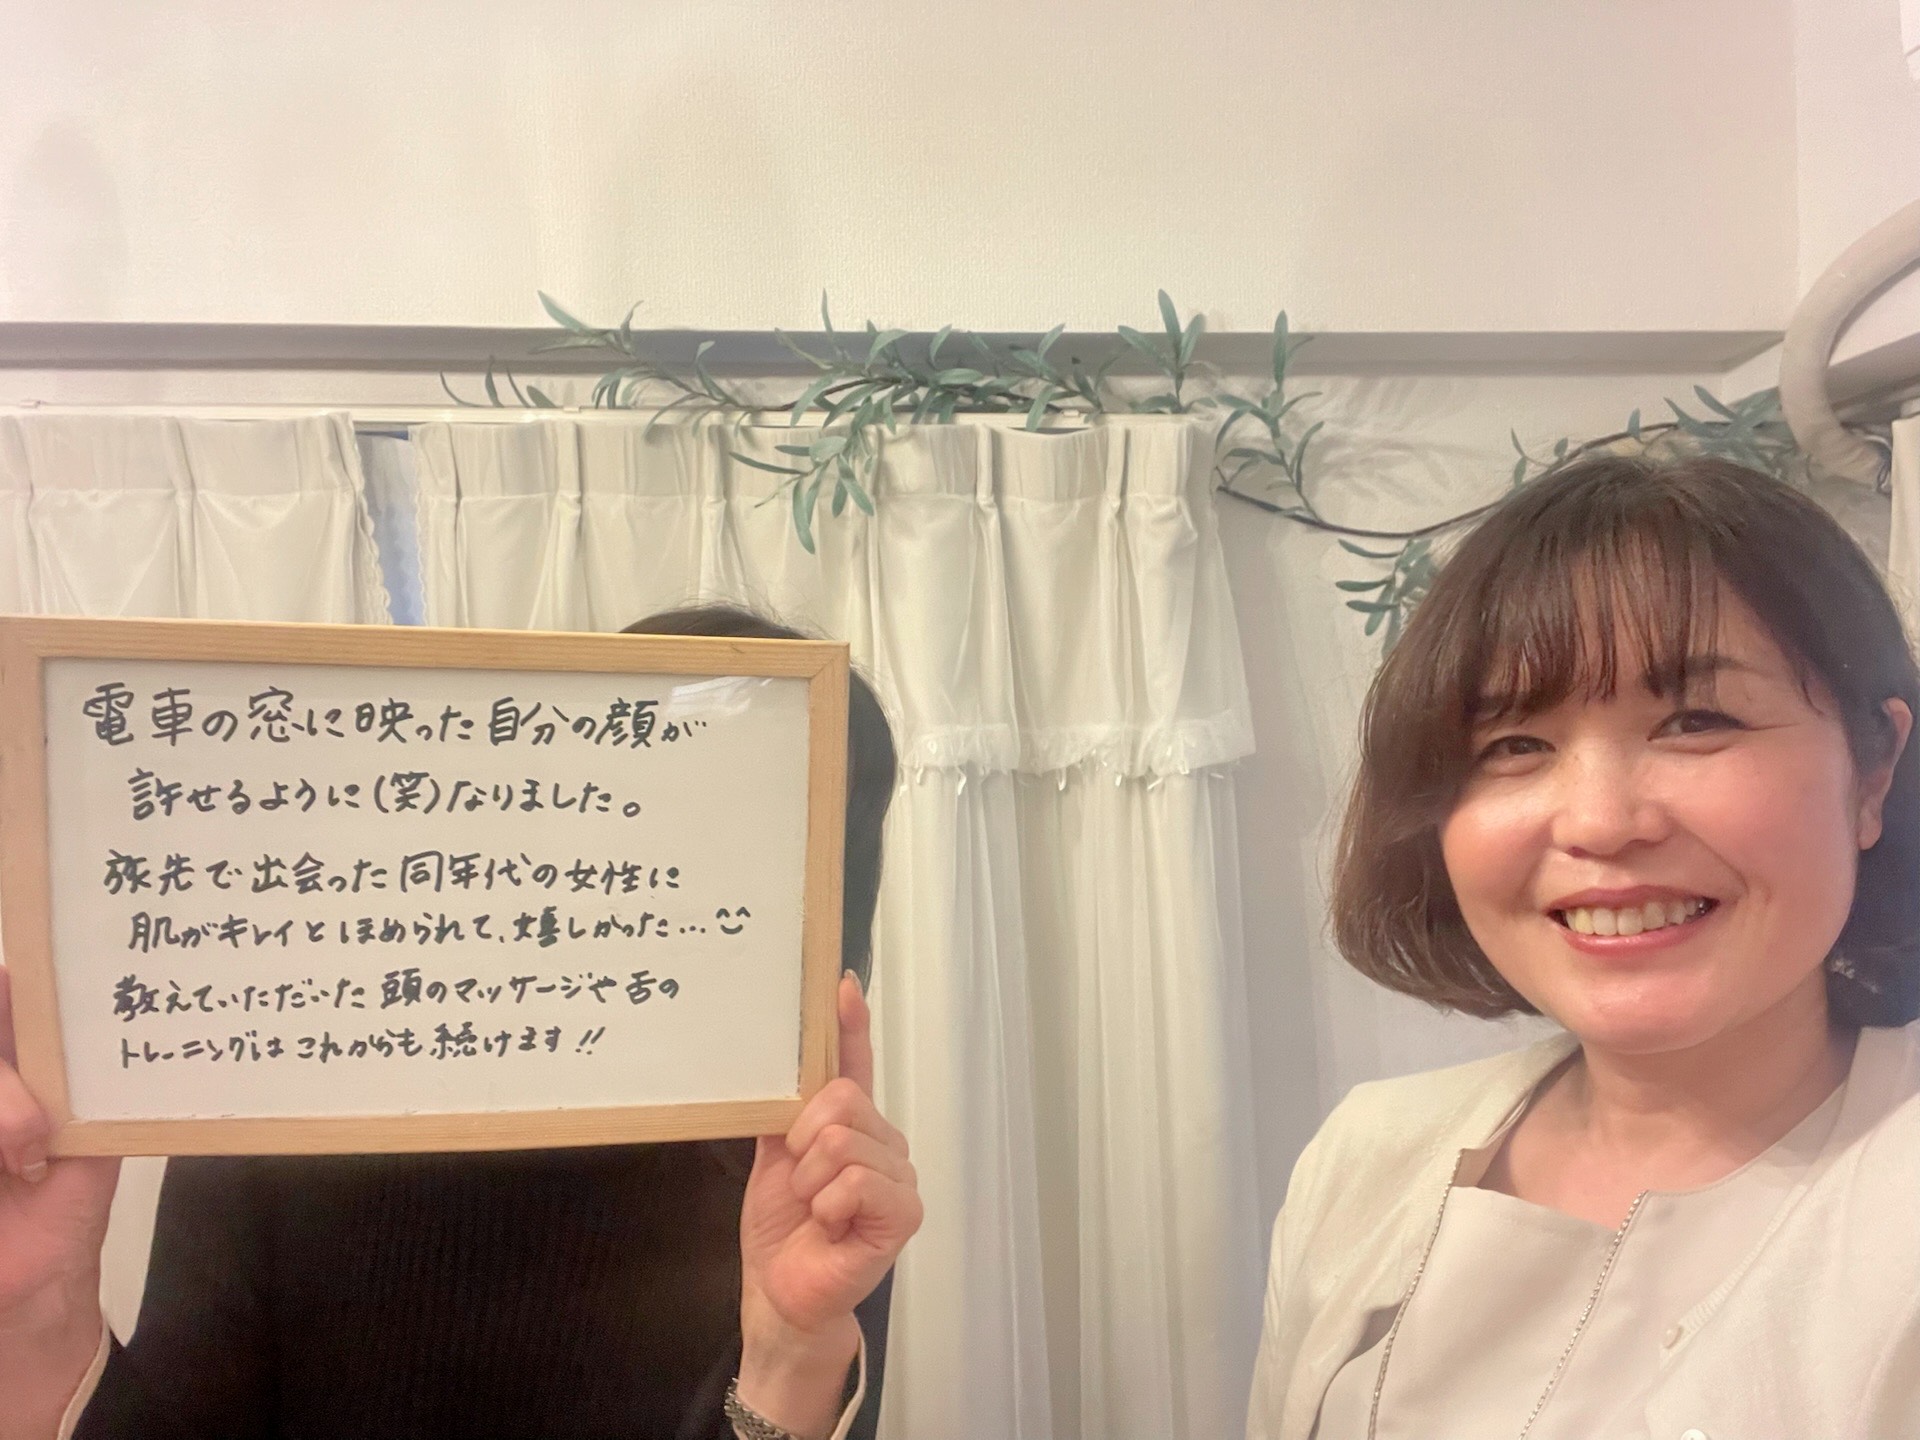 電車の窓に映った自分の顔が
許せるように(笑)なりました。
旅先で出会った同年代の女性に
肌がキレイとほめられて、嬉しかった…^^
教えていただいた頭のマッサージや舌の
トレーニングはこれからも続けます!!